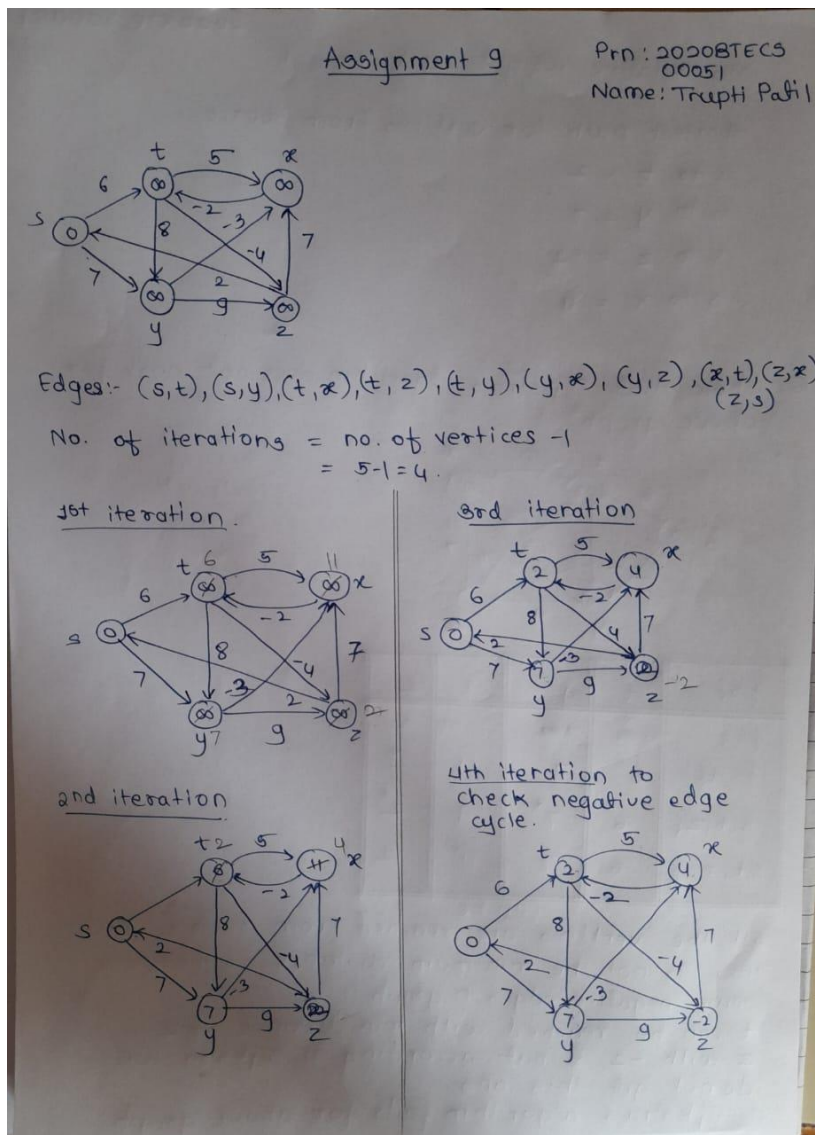 Assignment 9
Prn: 2020BTECS
00051
Name: Trupti Patil
t 5 x
6 ∞ -2 ∞
s 0 8 -3 -4 7
7 ∞ 2 ∞
9
y z
Edges:- (s,t),(s,y),(t,x),(t,z),(t,y),(y,x),(y,z),(x,t),(z,x)
(z,s)
No. of iterations = no. of vertices -1
= 5-1=4.
1st iteration.
t 6 5 11
6 ∞ -2 ∞ x
s 0 8 -4 7
7 -3 2
∞ 9 ∞ 2
y 7 z
2nd iteration
t 2 5 4
6 -2 11 x
s 0 8 7
2 -4
7 -3
7 9
y z
3rd iteration
t 5 x
6 2 -2 4
s 0 8 4 7
2
7 7 -3 9 -2
y z
4th iteration to
check negative edge
cycle.
t 5 x
6 2 -2 4
0 8 7
2 -4
7 -3
7 9 -2
y z